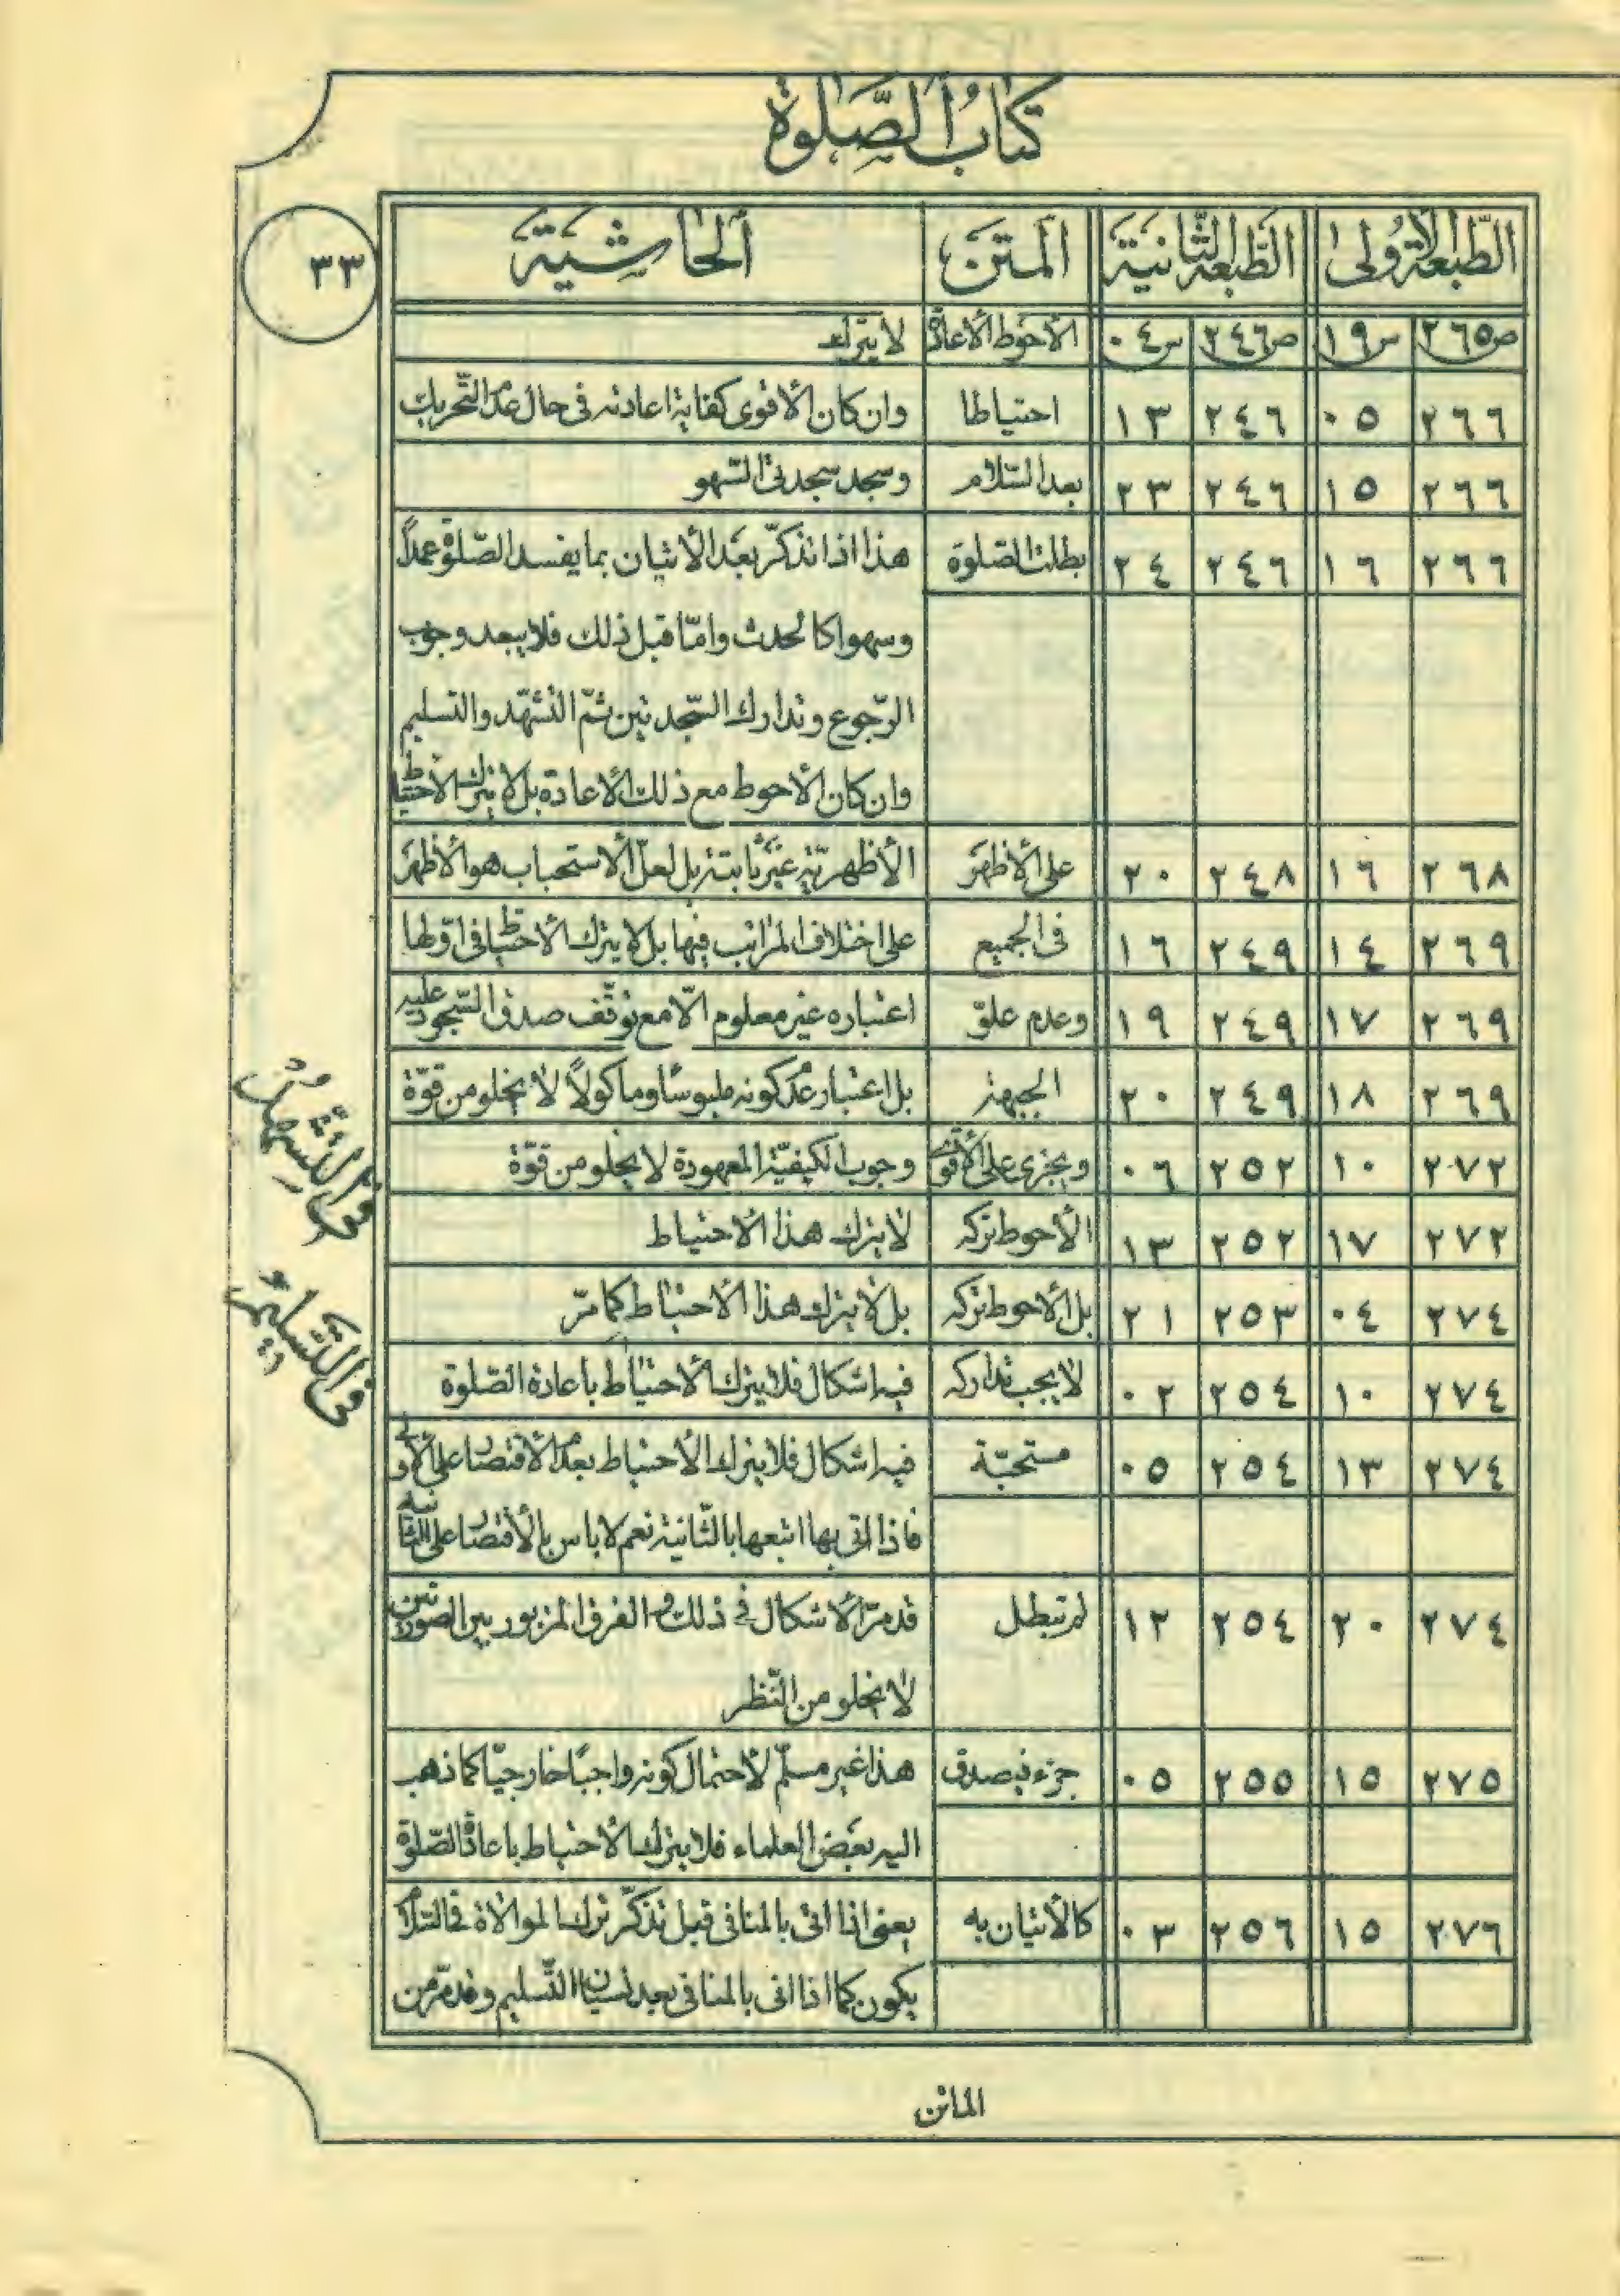 كتاب الصّلوة
٣٣
الطّبعة الأولى الطّبعة الثّانية المتن الحاشية
ص٢٦٥ س١٩ ص٢٤٦ س٠٤ الأحوط الأعادة لا يترك
٢٦٦ ٠٥ ٢٤٦ ١٣ احتياطا وان كان الأقوى كفاية اعادته فى حال عدم التّحريك
٢٦٦ ١٥ ٢٤٦ ٢٣ بعد السّلام وسجد سجدتى السّهو
٢٦٦ ١٦ ٢٤٦ ٢٤ بطلت الصّلوة هذا اذا تذكّر بعد الأتيان بما يفسد الصّلوة عمداً
وسهوا كالحدث وامّا قبل ذلك فلا يبعد وجوب
الرّجوع وتدارك السّجدتين ثمّ التّشهّد والتسليم
وان كان الأحوط مع ذلك الأعادة بل لا يترك الأحتياط
٢٦٨ ١٦ ٢٤٨ ٢٠ على الأظهر الأظهريّة غير ثابتة بل لعلّ الأستحباب هو الأظهر
٢٦٩ ١٤ ٢٤٩ ١٦ فى الجميع على اختلاف المراتب فيها بل لا يترك الأحتياط فى اوّلها
٢٦٩ ١٧ ٢٤٩ ١٩ وعدم علوّ اعتباره غير معلوم الّا مع توقّف صدق السّجود عليه
٢٦٩ ١٨ ٢٤٩ ٢٠ الجبهة بل اعتبار عدم كونه ملبوسًا ومأكولاً لا يخلو من قوّة
فى التّشهّد
٢٧٢ ١٠ ٢٥٢ ٠٦ ويجزى على الأقوى وجوب الكيفيّة المعهودة لا يخلو من قوّة
٢٧٢ ١٧ ٢٥٢ ١٣ الأحوط تركه لا يترك هذا الأحتياط
فى التّسليم
٢٧٤ ٠٤ ٢٥٣ ٢١ بل الأحوط تركه بل لا يترك هذا الأحتياط كما مرّ
٢٧٤ ١٠ ٢٥٤ ٠٢ لا يجب تداركه فيه اشكال فلا يترك الأحتياط باعادة الصّلوة
٢٧٤ ١٣ ٢٥٤ ٠٥ مستحبّة فيه اشكال فلا يترك الأحتياط بعدم الأقتصار على الأولى
فاذا اتى بها اتبعها بالثّانية نعم لا باس بالأقتصار على الثّانية
٢٧٤ ٢٠ ٢٥٤ ١٢ لم تبطل قد مرّ الأشكال فى ذلك و الفرق المزبور بين الصورتين
لا يخلو من النّظر
٢٧٥ ١٥ ٢٥٥ ٠٥ جزء فيصدق هذا غير مسلّم لأحتمال كونه واجبًا خارجيّا كما ذهب
اليه بعض العلماء فلا يترك الأحتياط باعادة الصّلوة
٢٧٦ ١٥ ٢٥٦ ٠٣ كالأتيان به يعنى اذا اتى بالمنافى قبل تذكّر ترك الموالاة فى السّلام
يكون كما اذا اتى بالمنافى بعد نسيان التّسليم وقد مرّ من
الماتن